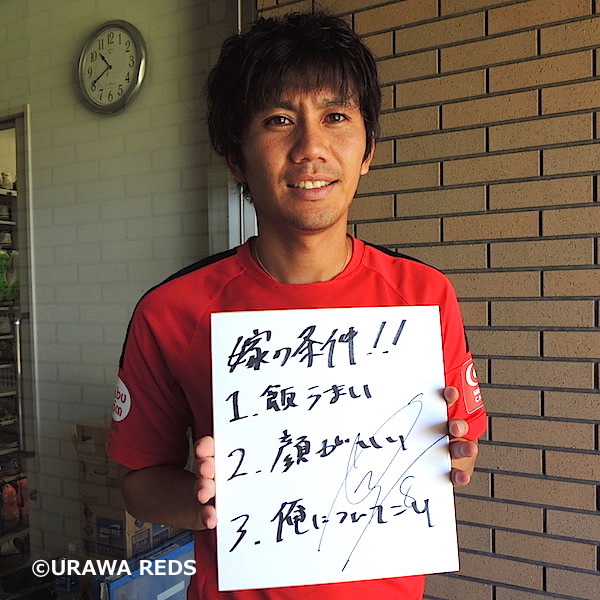 嫁の条件!!
1.飯うまい
2.顔がいい
3.俺についてこい
©URAWA REDS